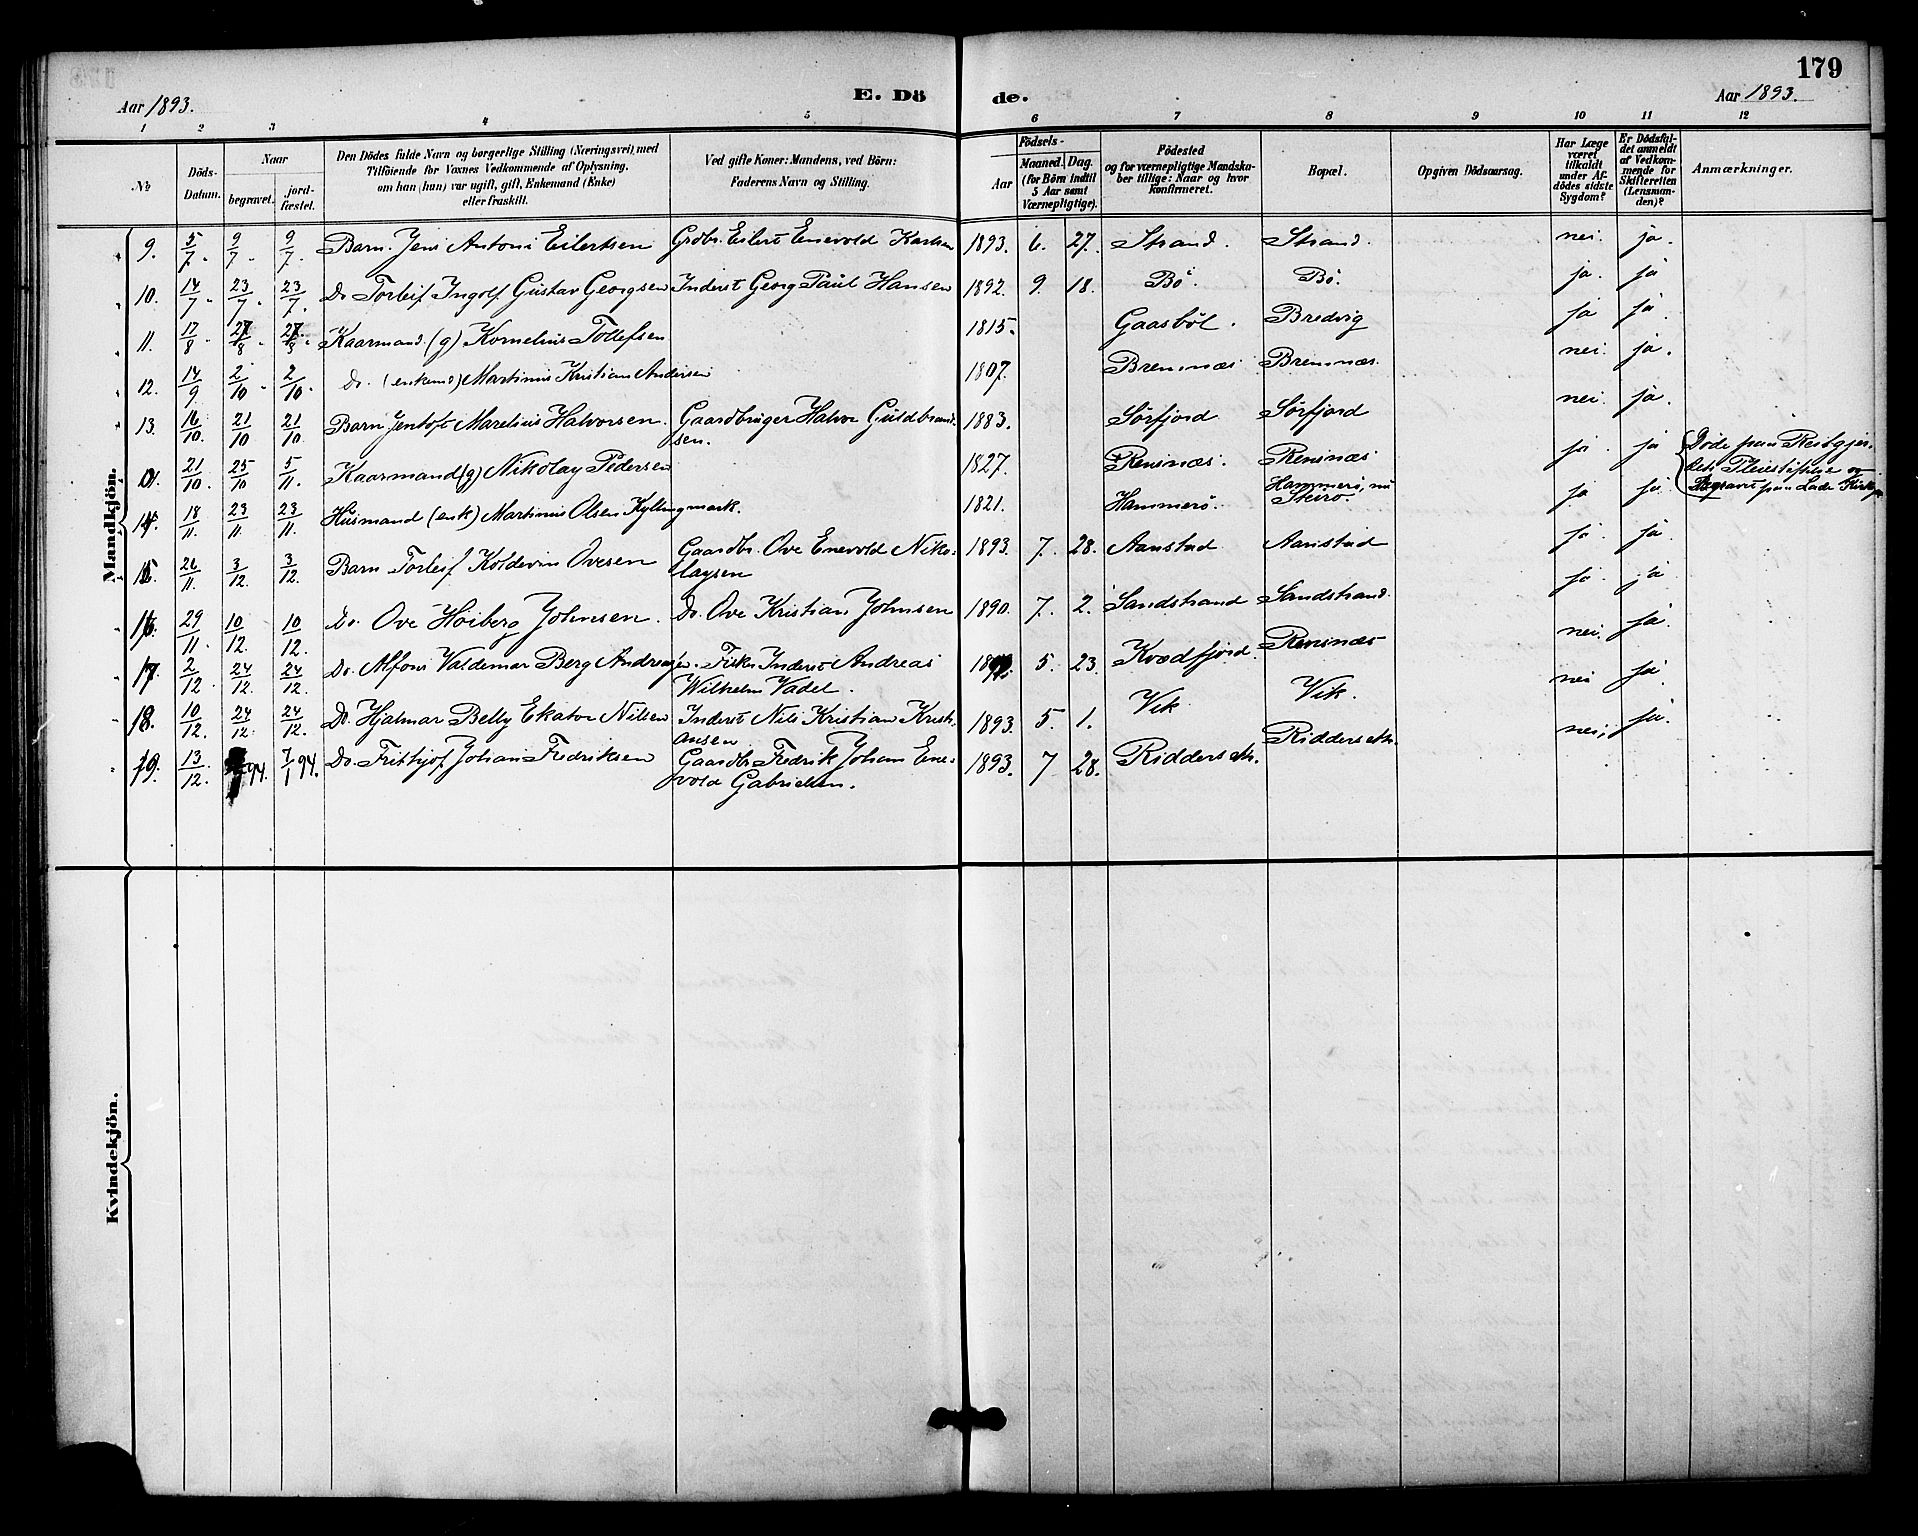 179
Aar 1893. E. Dö de. Aar 1893.
1 2 3 4 5 6 7 8 9 10 11 12
No
Döds-Datum.
Naar
begravet.
jord-fæstet.
Den Dödes fulde Navn og borgerlige Stilling (Næringsvei), med
Tilföiende for Voxnes Vedkommende af Oplysning,
om han (hun) var ugift, gift, Enkemand (Enke)
eller fraskilt.
Ved gifte Koner: Mandens, ved Börn:
Faderens Navn og Stilling.
Födsels-
Aar
Maaned. Dag.
(for Börn indtil
5 Aar samt
Værnepligtige).
Födested
og for værnepligtige Mandska-
ber tillige: Naar og hvor
Konfirmeret.
Bopæl.
Opgiven Dödsaarsag.
Har Læge
været
tilkaldt
under Af-
dödes sidste
Sygdom?
Er Dödsfal-
det anmeldt
af Vedkom-
mende for
Skifteretten
(Lensman-
den)?
Anmærkninger.
Mandkjön.
9. 5/7. 9/7. 9/7. Barn. Jens Antoni Eilertsen Grdbr. Eilert Enevold Karlsen 1893. 6. 27. Strand. Strand. nei. ja.
10. 14/7. 23/7. 23/7. Do Torleif Ingolf Gustav Georgsen Inderst Georg Paul Hansen 1892. 9. 18. Bö. Bö. ja. ja
11. 12/8. 27/8. 27/8. Kaarmand. (g) Kornelius Tollefsen 1815. Gaasböl. Bredvig ja ja.
12. 14/9 2/10. 2/10. Do. (enkem.) Martinus Kristian Andersen 1807. Bremnæs Bremnæs. nei. ja.
13. 16/10. 21/10 21/10. Barn Jentoft Marelius Halvorsen. Gaardbruger Halvor Guldbrand-
sen. 1883. Sörfjord Sörfjord nei. ja.
21/10. 25/10 5/11. Kaarmand (g) Nikolay Pedersen 1827. Rensnæs. Rensnæs ja. ja Döde paa
og
Begravet paa Lade
14. 18/11. 23/11. 23/11. Husmand (enk) Martinus Olsen Kyllingmark. 1821. Hammerö. Hammerö, nu
ja ja
15. 26/11. 3/12. 3/12. Barn Torleif Koldevin Ovesen Gaardbr. Ove Enevold Niko-
laysen 1893. 7. 28. Aanstad Aanstad ja. ja.
16. 29/11. 10/12. 10/12. Do. Ove Höiberg Johnsen. Do. Ove Kristian Johnsen 1890. 7. 2. Sandstrand Sandstrand. ja. ja
17. 2/12. 24/12. 24/12. Do. Alfons Valdemar Berg Andreasen. Fisker Inderst Andreas
Wilhelm Vadel. 5. 23 Kvædfjord. Rensnæs nei. ja.
18. 10/12. 24/12. 24/12. Do. Hjalmar Betly Ekator Nilsen Inderst Nils Kristian Krist-
ansen 1893. 5. 1. Vik Vik. nei ja.
19. 13/12. 94. 7/1 94. Do. Frithjof Johan Fredriksen Gaardbr. Fredrik Johan Ene-
vold Gabrielsen. 1893. 7 28. nei, ja.
Kvindekjön.